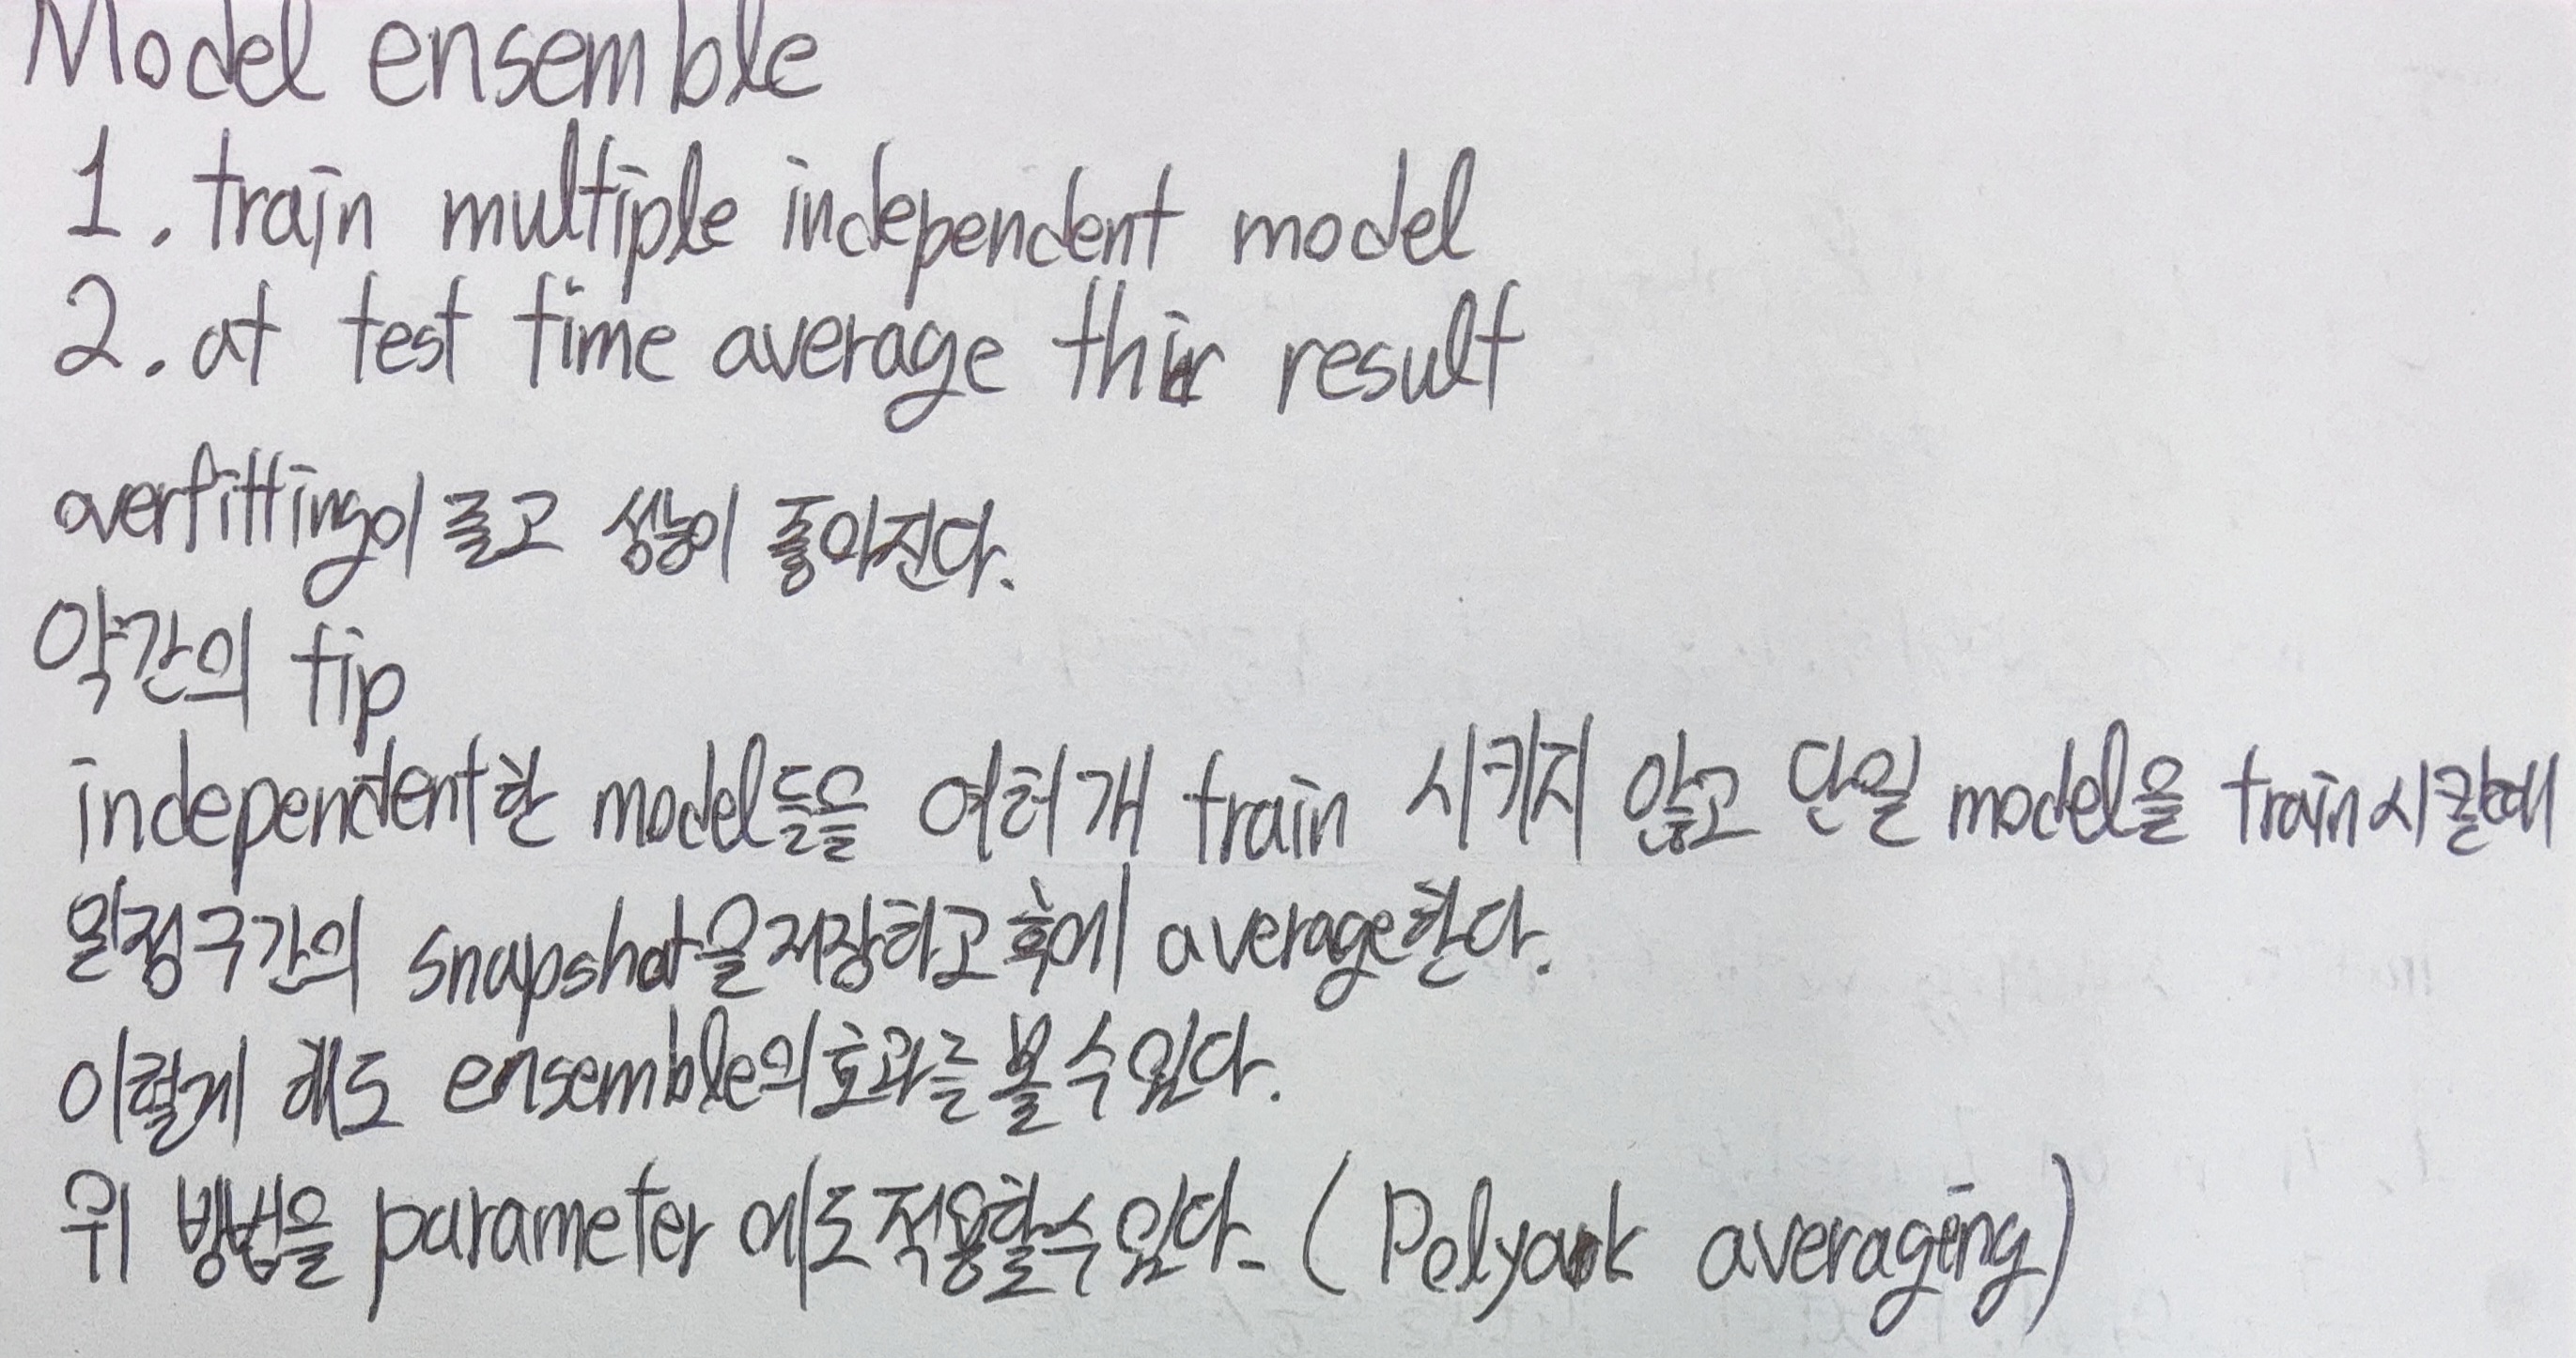 Model ensemble
1. train multiple independent model
2. at test time average thir result
overfitting이 줄고 성능이 좋아진다.
약간의 tip
independent한 model들을 여러개 train 시키지 않고 단일 model을 train시킬때
일정구간의 snapshot을 저장하고 후에 average한다.
이렇게 해도 ensemble의 효과를 볼 수 있다.
위 방법을 parameter 에도 적용할 수 있다. (Polyak averaging)